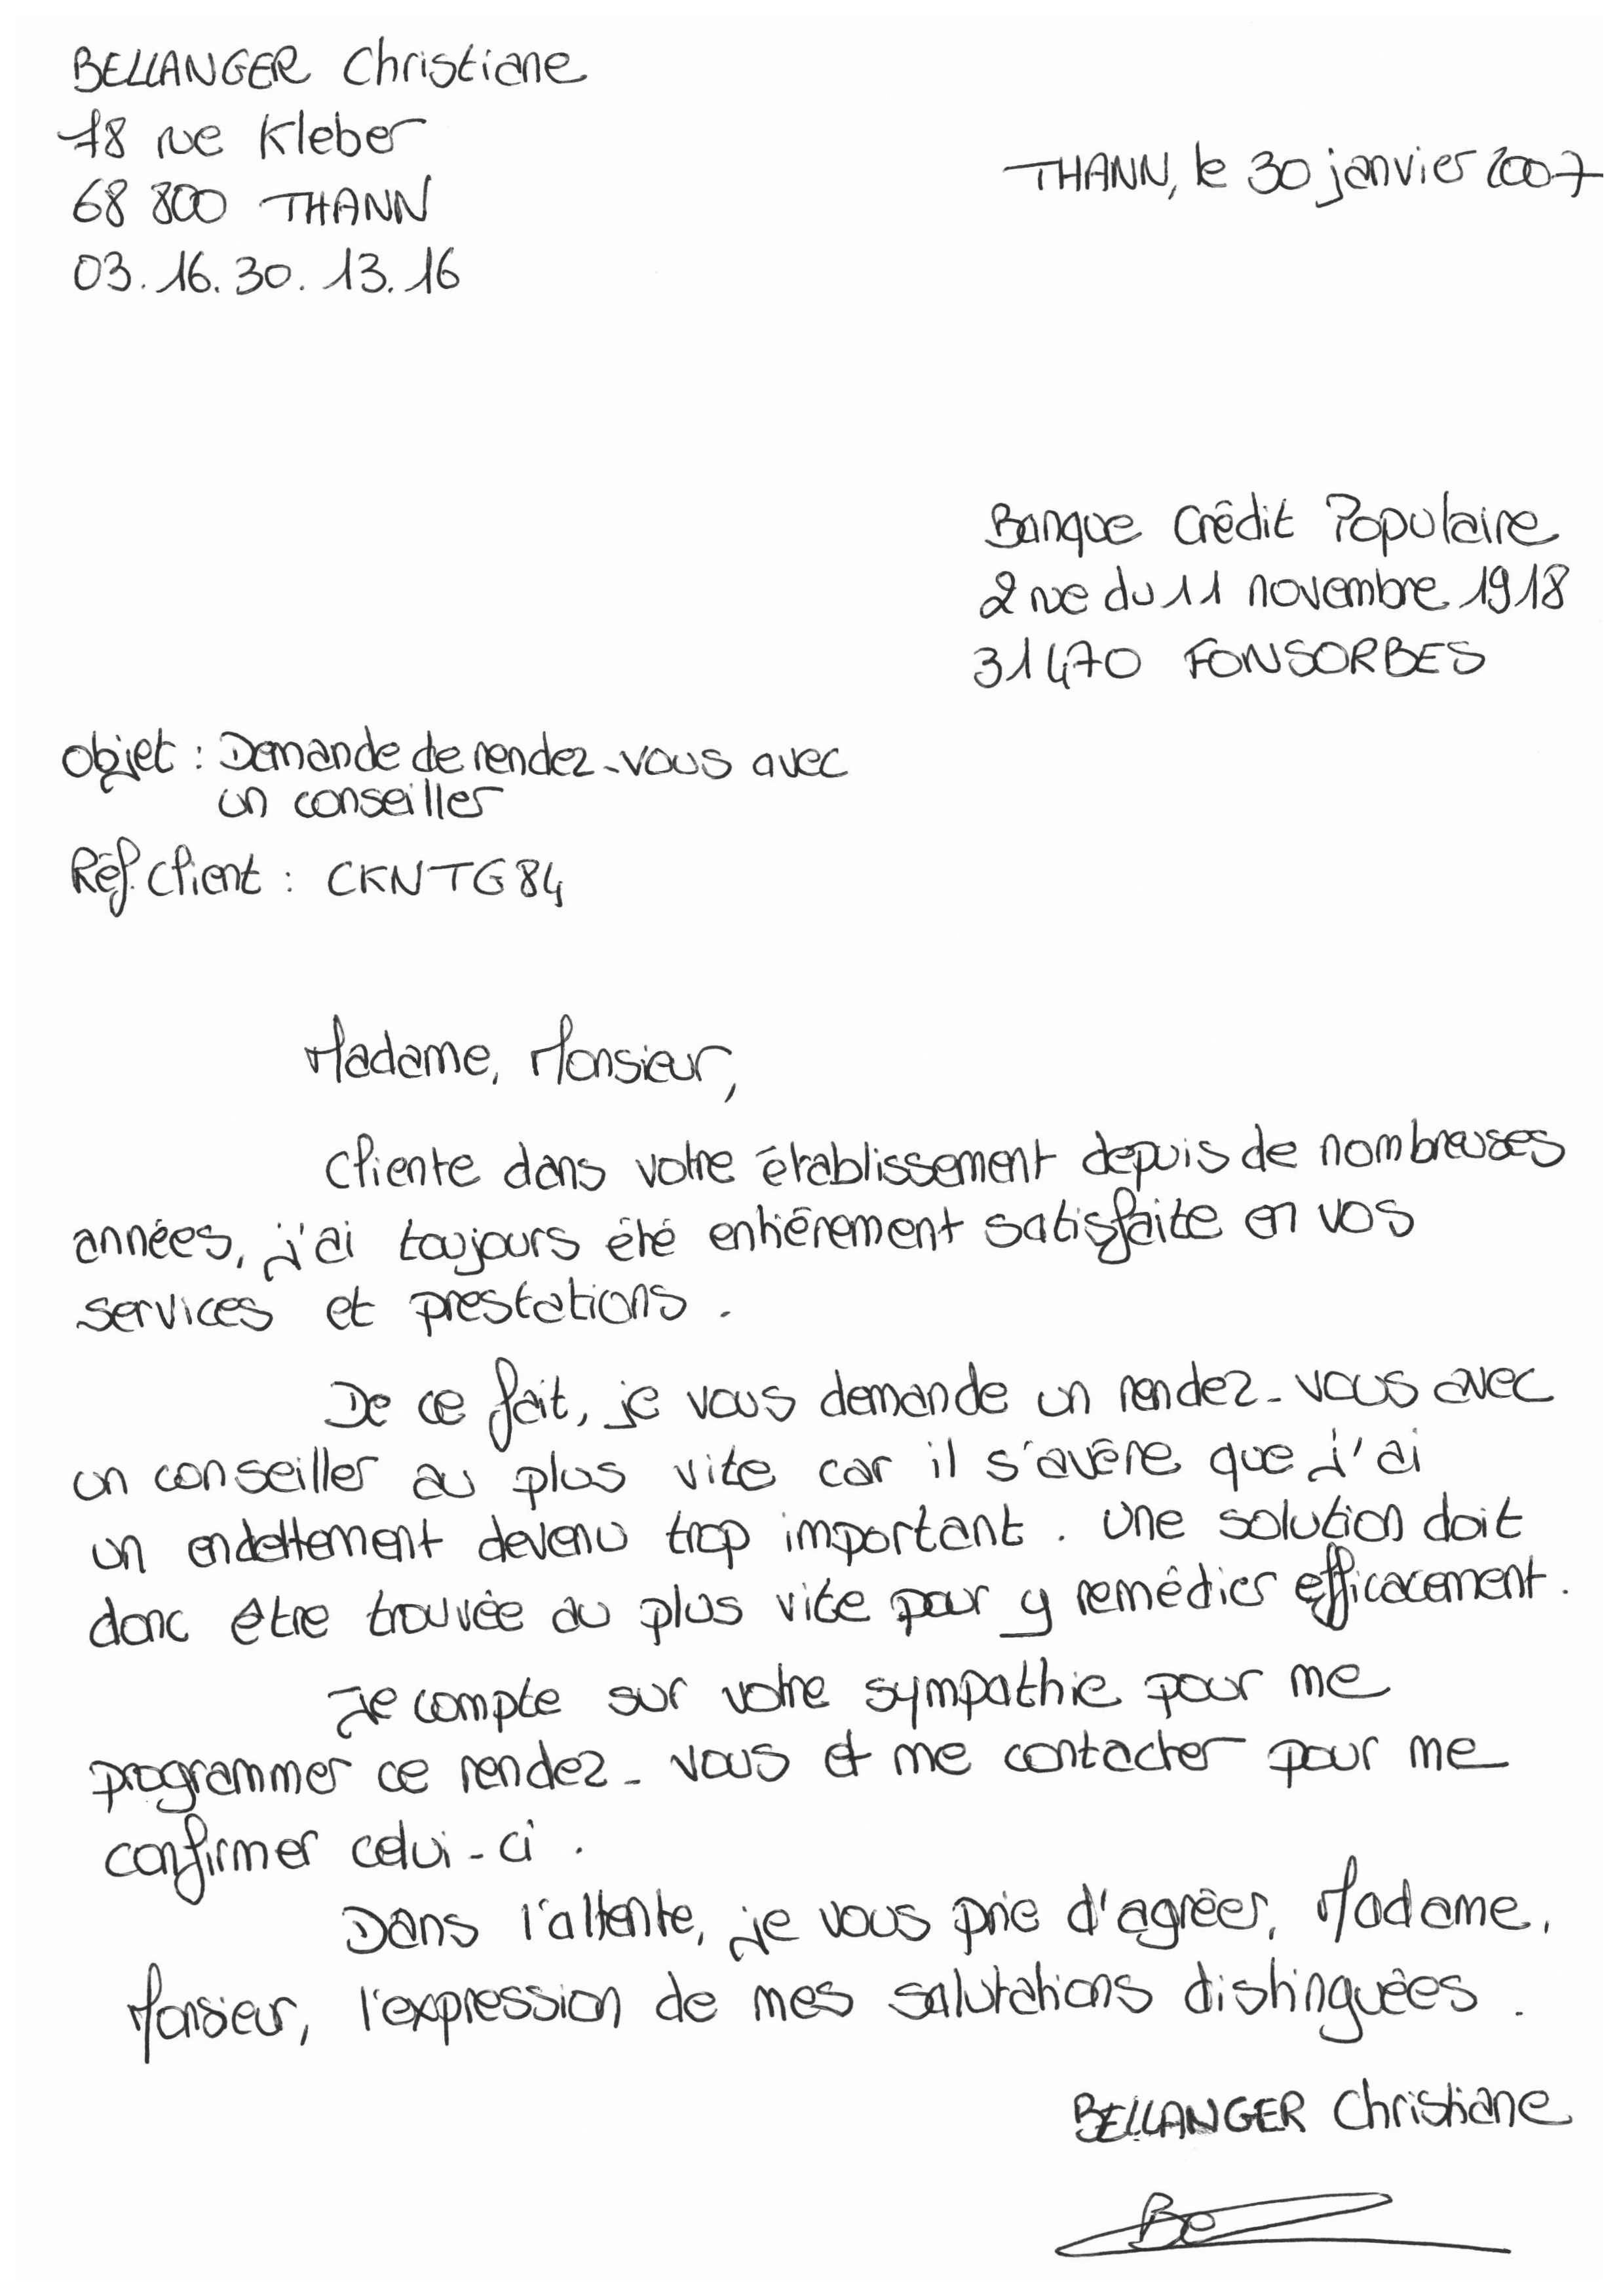 BELLANGER Christiane
78 rue Kleber
68 800 THANN
03.16.30.13.16
THANN, le 30 janvier 2007
Banque Crédit Populaire
2 rue du 11 novembre 1918
31470 FONSORBES
Objet : Demande de rendez-vous avec
un conseiller
Réf. Client : CKNTG84
Madame, Monsieur,
Cliente dans votre établissement depuis de nombreuses
années, j'ai toujours été entièrement satisfaite en vos
services et prestations.
De ce fait, je vous demande un rendez-vous avec
un conseiller au plus vite car il s'avère que j'ai
un endettement devenu trop important. Une solution doit
donc être trouvée au plus vite pour y remédier efficacement.
Je compte sur votre sympathie pour me
programmer ce rendez-vous et me contacter pour me
confirmer celui-ci.
Dans l'attente, je vous prie d'agréer, Madame,
Monsieur, l'expression de mes salutations distinguées.
BELLANGER Christiane
Be